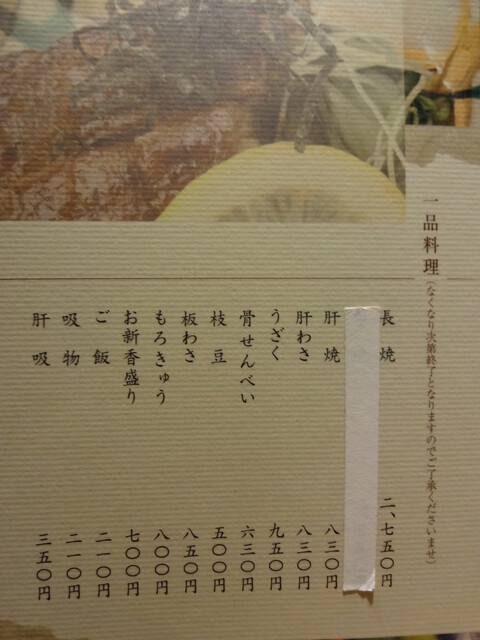 一品料理(なくなり次第終了となりますのでご了承くださいませ)
長焼 二、七五〇円
肝焼 八三〇円
肝わさ 八三〇円
うざく 九五〇円
骨せんべい 六三〇円
枝豆 五〇〇円
板わさ 八五〇円
もろきゅう 八〇〇円
お新香盛り 七〇〇円
ご飯 二一〇円
吸物 二一〇円
肝吸 三五〇円